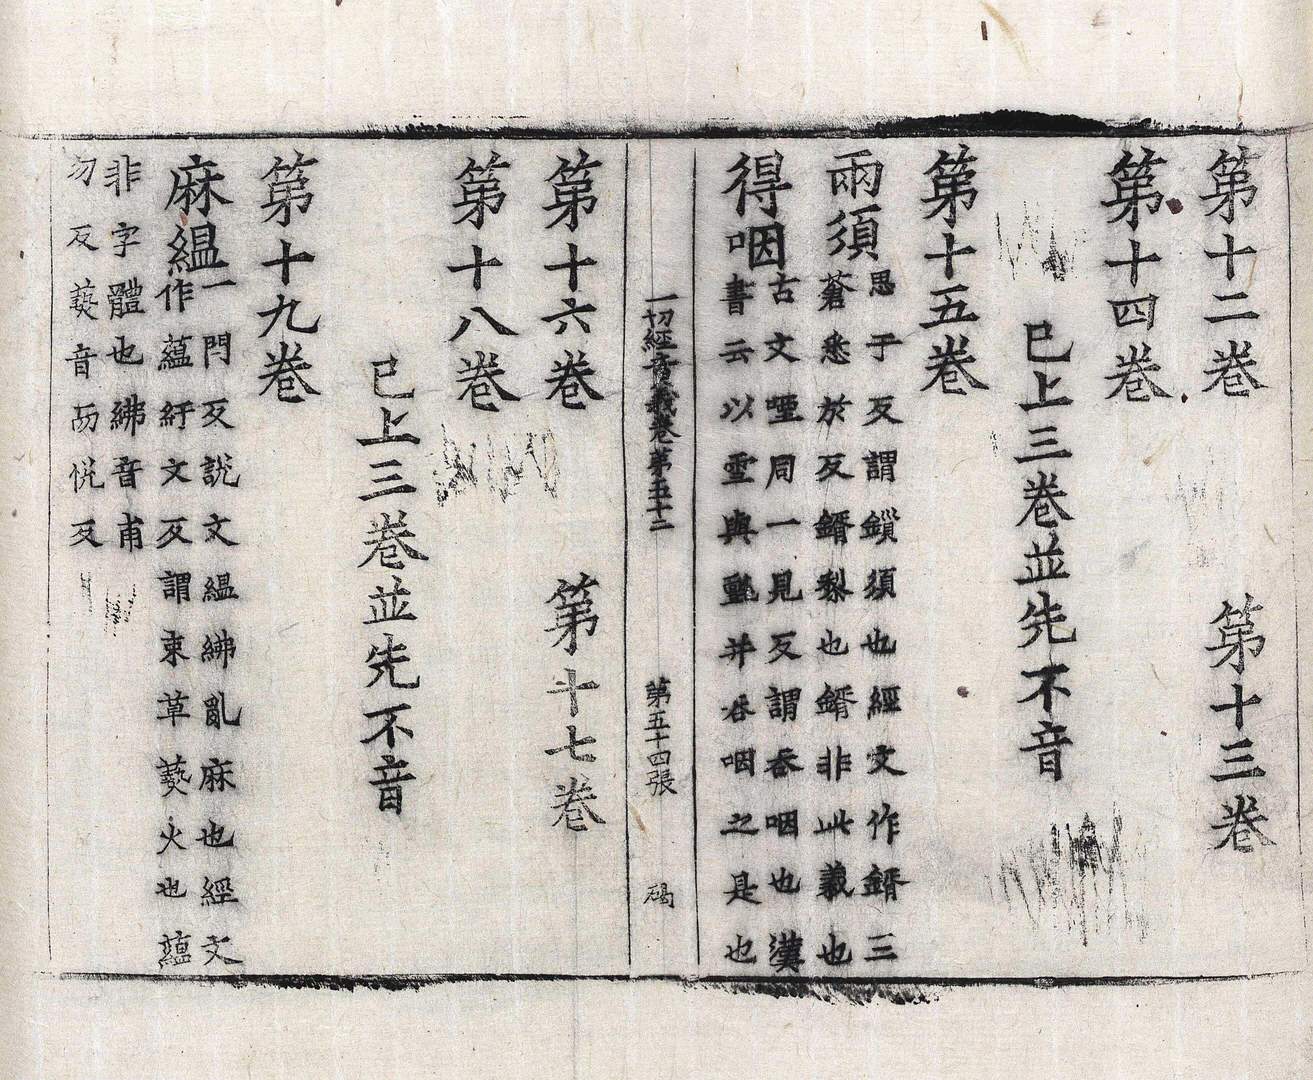 第十二卷 第十三卷
第十四卷
已上三卷並先不音
第十五卷
兩須
思于反謂鎖須也經文作鑐三
蒼悉於反鑐梨也鑐非此義也
得咽
古文㗘同一見反謂吞咽也漢
書云以雪與氈并吞咽之是也
一切經音義卷第五十二 第五十四張 碣
第十六卷 第十七卷
第十八卷
已上三卷並先不音
第十九卷
麻縕
一問反說文縕紼亂麻也經文
作蘊紆文反謂束草爇火也蘊
非字體也紼音甫
勿反爇音而悅反